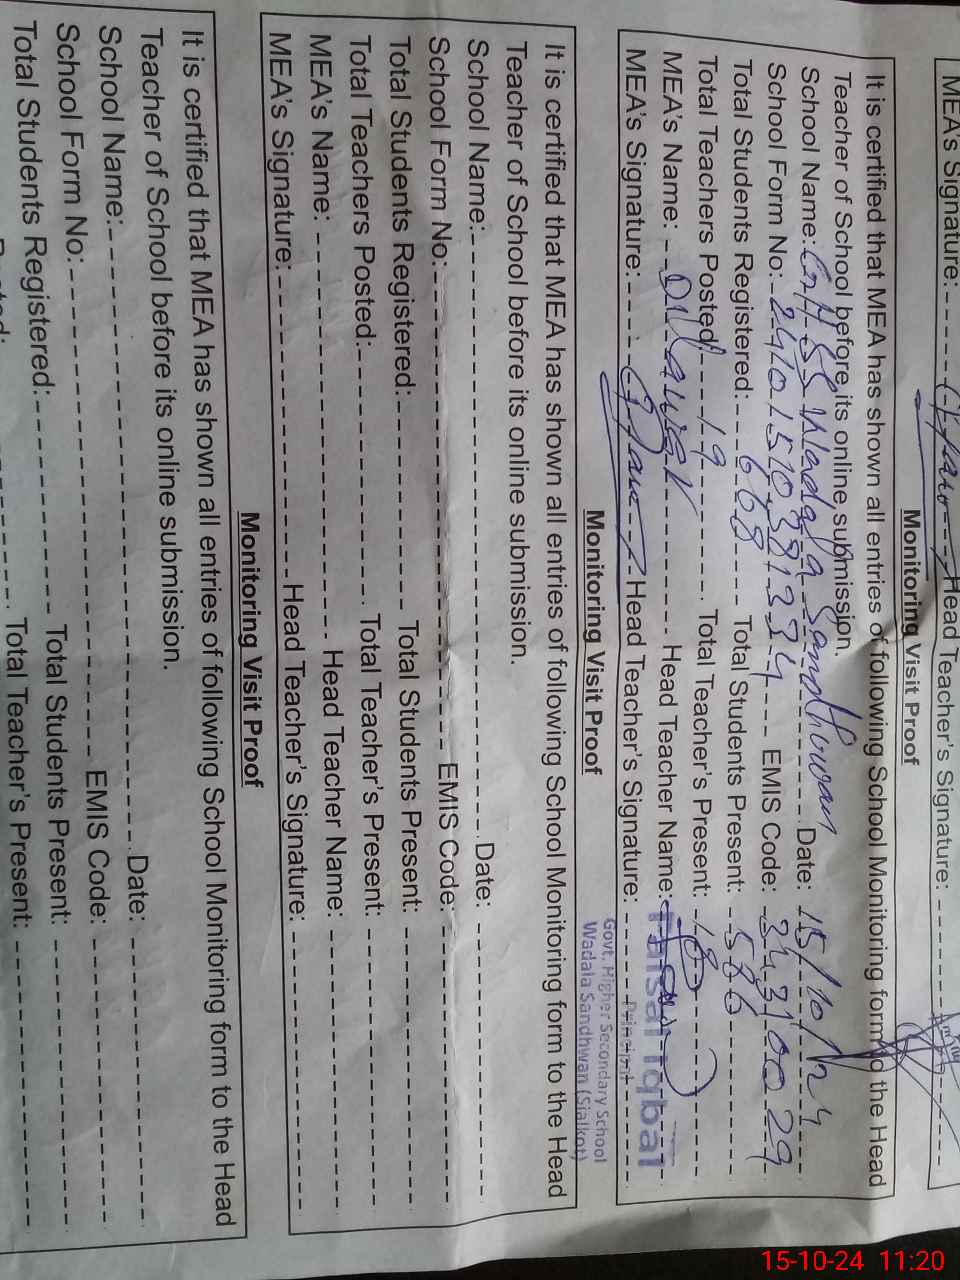 MEA's Signature: Head Teacher's Signature:
Monitoring Visit Proof
It is certified that MEA has shown all entries of following School Monitoring form to the Head
Teacher of School before its online submission.
School Name: GHSS Wadala Sandhwan Date: 15/10/24
School Form No: 24101510381334 EMIS Code: 34310029
Total Students Registered: 668 Total Students Present: 586
Total Teachers Posted: 19 Total Teacher's Present: 18
MEA's Name: Dilawar Head Teacher Name: Faisal Iqbal
MEA's Signature: Head Teacher's Signature: Principal
Govt. Higher Secondary School
Wadala Sandhwan (Sialkot)
Monitoring Visit Proof
It is certified that MEA has shown all entries of following School Monitoring form to the Head
Teacher of School before its online submission.
School Name: Date:
School Form No: EMIS Code:
Total Students Registered: Total Students Present:
Total Teachers Posted: Total Teacher's Present:
MEA's Name: Head Teacher Name:
MEA's Signature: Head Teacher's Signature:
Monitoring Visit Proof
It is certified that MEA has shown all entries of following School Monitoring form to the Head
Teacher of School before its online submission.
School Name: Date:
School Form No: EMIS Code:
Total Students Registered: Total Students Present:
Total Teacher's Present:
15-10-24 11:20